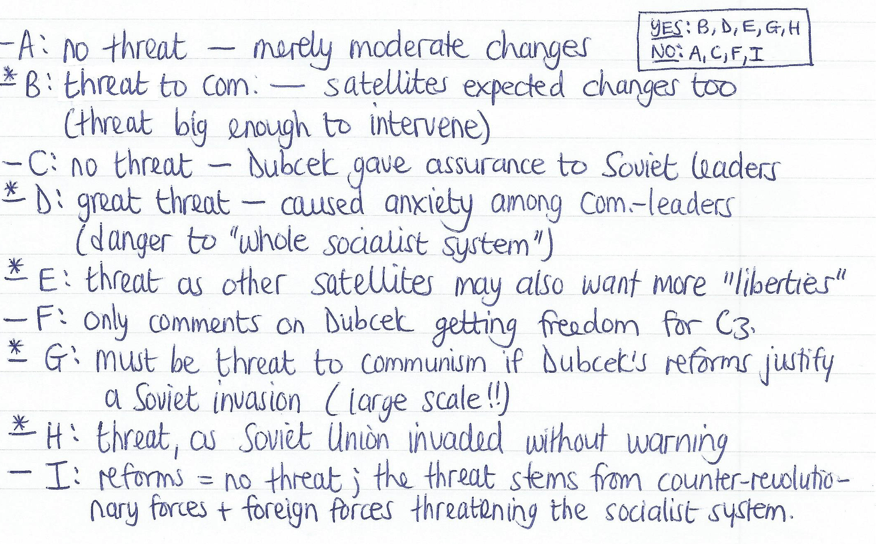 – A: no threat — merely moderate changes
YES: B, D, E, G, H
NO: A, C, F, I
* B: threat to com: — satellites expected changes too
(threat big enough to intervene)
– C: no threat — Dubcek gave assurance to Soviet leaders
* D: great threat — caused anxiety among Com.-leaders
(danger to "whole socialist system")
* E: threat as other satellites may also want more "liberties"
– F: only comments on Dubcek getting freedom for C3.
* G: must be threat to communism if Dubcek's reforms justify
a Soviet invasion (large scale!!)
* H: threat, as Soviet Union invaded without warning
– I: reforms = no threat; the threat stems from counter-revolutio-
nary forces + foreign forces threatening the socialist system.